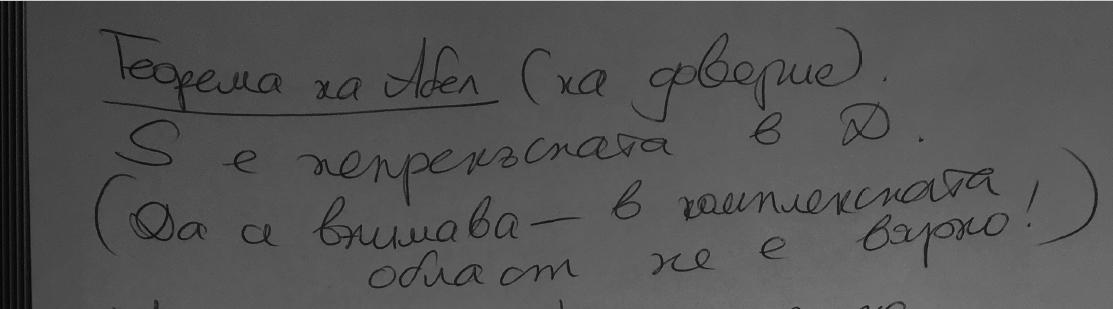 Теорема на Абел (на доверие).
S е непрекъсната в D.
(Да се внимава — в комплексната
област не е вярно!)